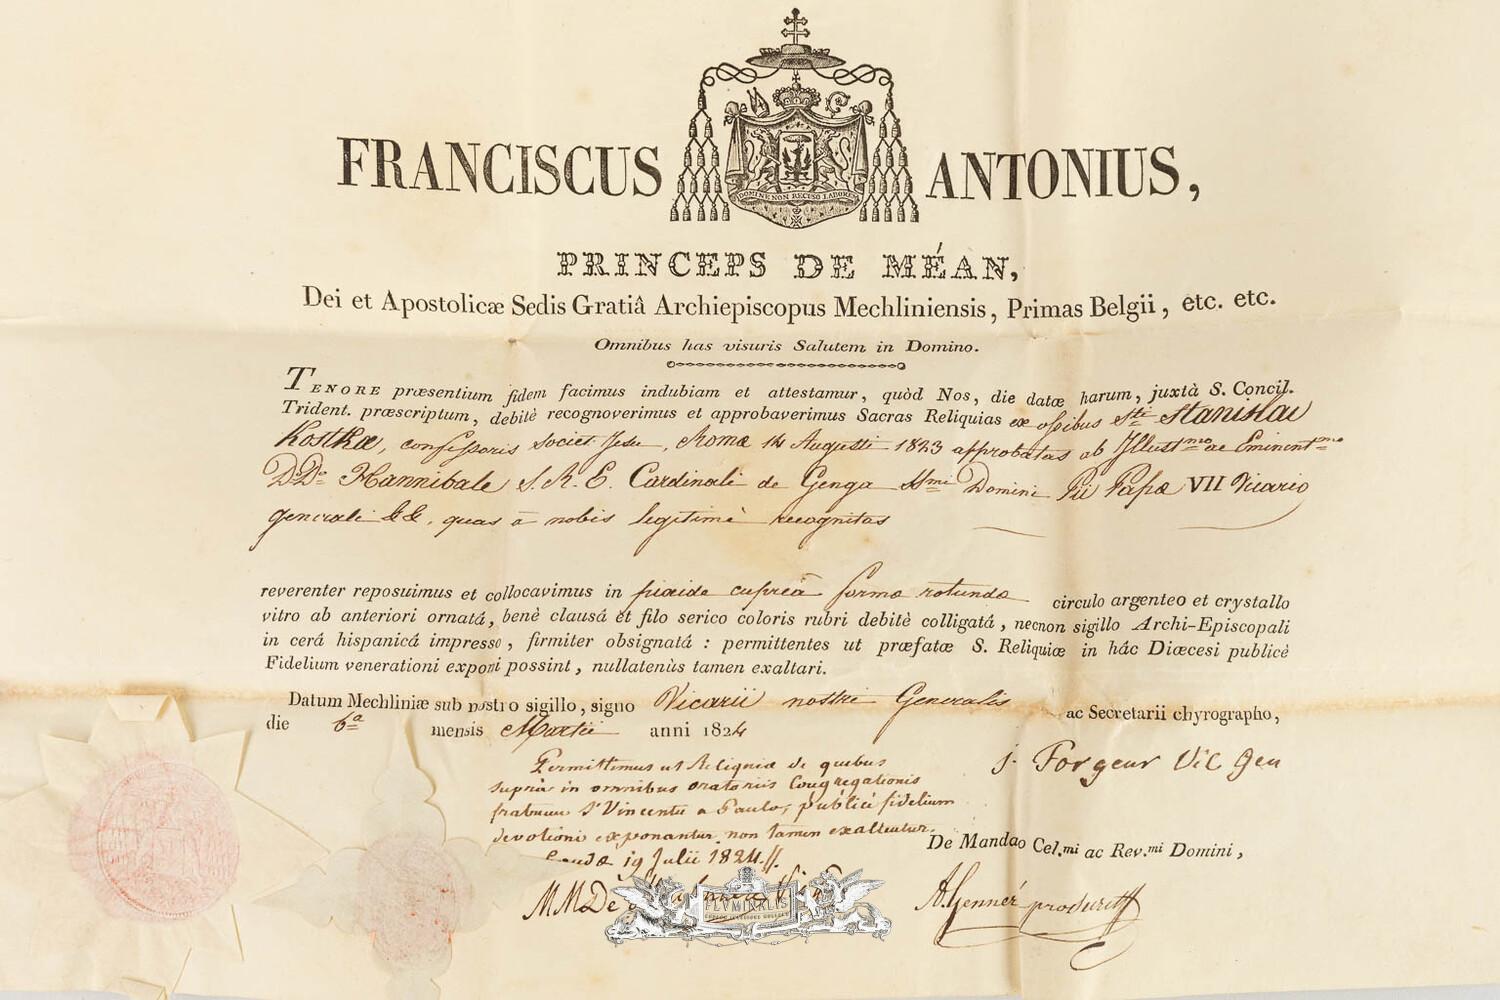 FRANCISCUS ANTONIUS,
DOMINE NON RECUSO LABOREM
PRINCEPS DE MÉAN,
Dei et Apostolicæ Sedis Gratiâ Archiepiscopus Mechliniensis, Primas Belgii, etc. etc.
Omnibus has visuris Salutem in Domino.
TENORE præsentium fidem facimus indubiam et attestamur, quòd Nos, die datæ harum, juxtà S. Concil.
Trident. præscriptum, debitè recognoverimus et approbaverimus Sacras Reliquias ex ossibus Sti Stanislai
Kostkæ, confessoris Societ. Jesu, Romæ 14 Augusti 1823 approbatas ab Illustmo ac Eminentmo
D.D. Hannibale S. R. E. Cardinali de Genga SSmi Domini Pii Papæ VII Vicario
generali &&, quas à nobis legitimè recognitas
reverenter reposuimus et collocavimus in pixide cupreâ forma rotunda circulo argenteo et crystallo
vitro ab anteriori ornatá, benè clausá et filo serico coloris rubri debitè colligatá, necnon sigillo Archi-Episcopali
in cerá hispanicá impresso, firmiter obsignatá : permittentes ut præfatæ S. Reliquiæ in hác Diœcesi publicè
Fidelium venerationi exponi possint, nullatenùs tamen exaltari.
Datum Mechliniæ sub nostro sigillo, signo Vicarii nostri Generalis ac Secretarii chyrographo,
die 6a mensis Martii anni 1824
J. Forgeur Vic Gen
Permittimus ut Reliquiæ de quibus
suprà in omnibus oratoriis Congregationis
fratrum St Vincentii a Paulo, publicè fidelium
devotioni exponantur non tamen exaltentur.
Gandæ 19 Julii 1824
De Mandao Cel.mi ac Rev.mi Domini,
M M De
FLUMINALIS